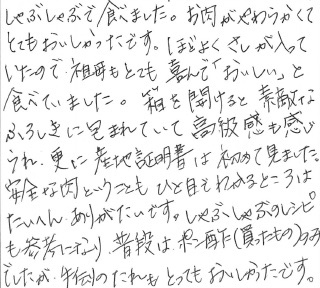 しゃぶしゃぶで食べました。お肉がやわらかくて
とてもおいしかったです。ほどよくさしが入って
いたので、祖母もとても喜んで「おいしい」と
食べていました。箱を開けると素敵な
ふろしきに包まれていて高級感も感じ
られ、更に産地証明書は初めて見ました。
安全な肉ということもひと目でわかるところは
たいへんありがたいです。しゃぶしゃぶのレシピ
も参考になり、普段はポン酢(買ったもの)のみ
でしたが、手作のたれもとってもおいしかったです。